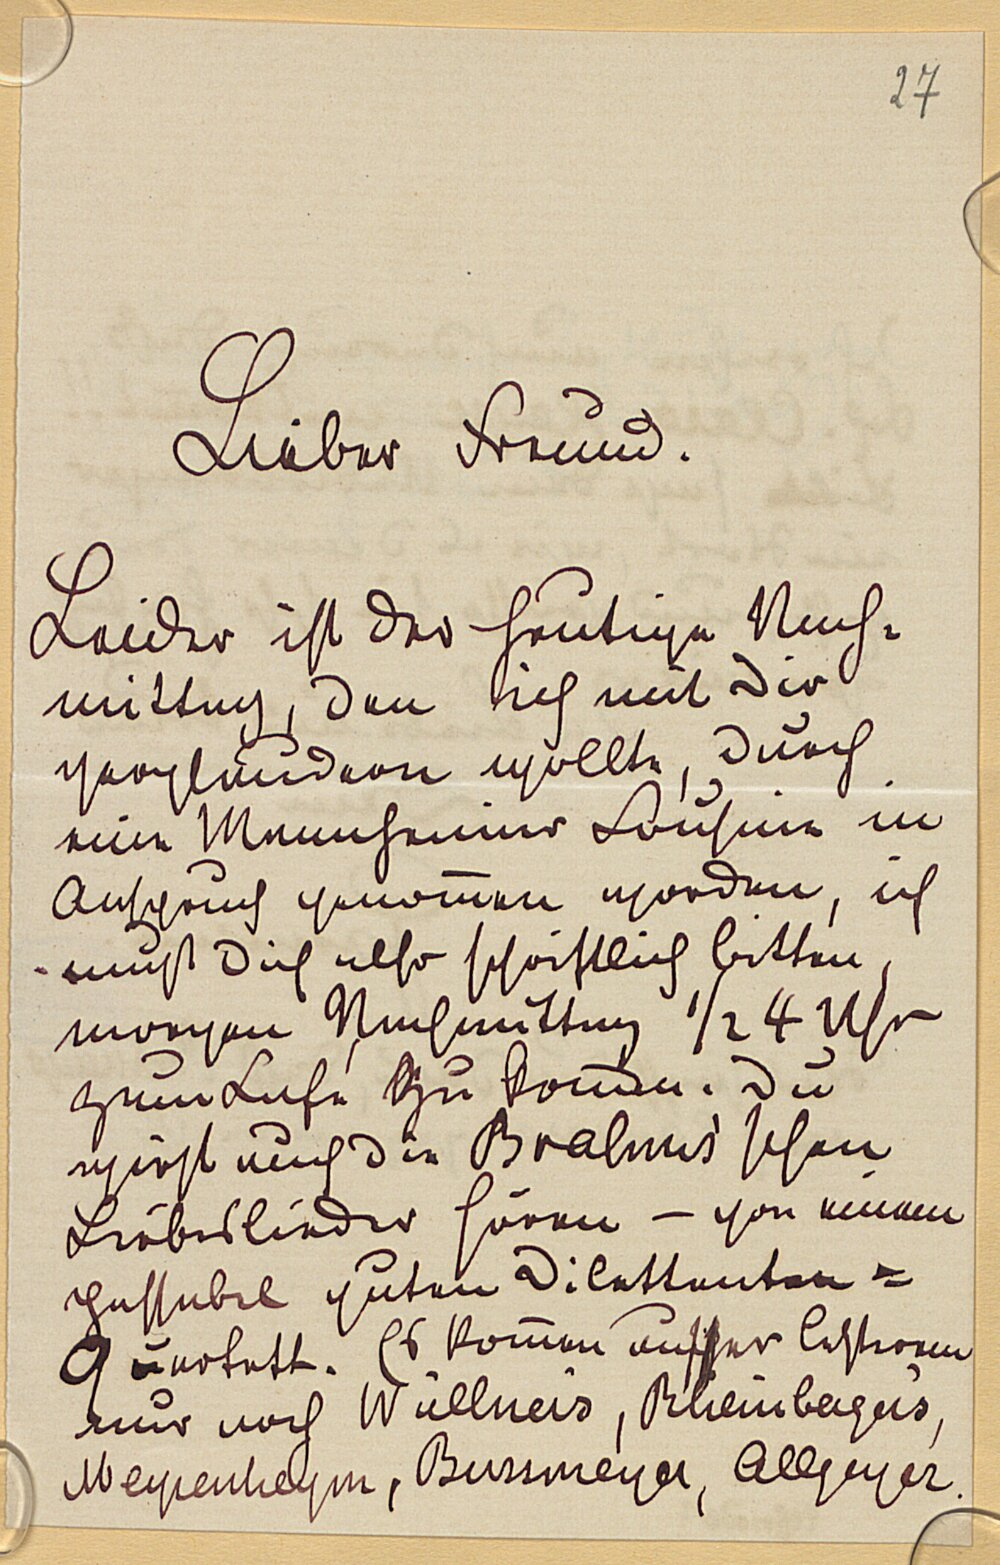 27
Lieber Freund.
Leider ist der heutige Nach-
mittag, den ich mit Dir
verplaudern wollte, durch
eine Mannheimer Cousine in
Anspruch genom̅en worden, ich
muß Dich also schriftlich bitten,
morgen Nachmittag 1/2 4 Uhr
zum Cafe zu kom̅en. Du
wirst auch die Brahms'schen
Liebeslieder hören – von einem
passabel guten Dilettanten=
Quartett. Es kom̅en ausser letzterem
nur noch Wüllners, Rheinbergers,
Meyenheym, Bussmeyer, Allgeyer.